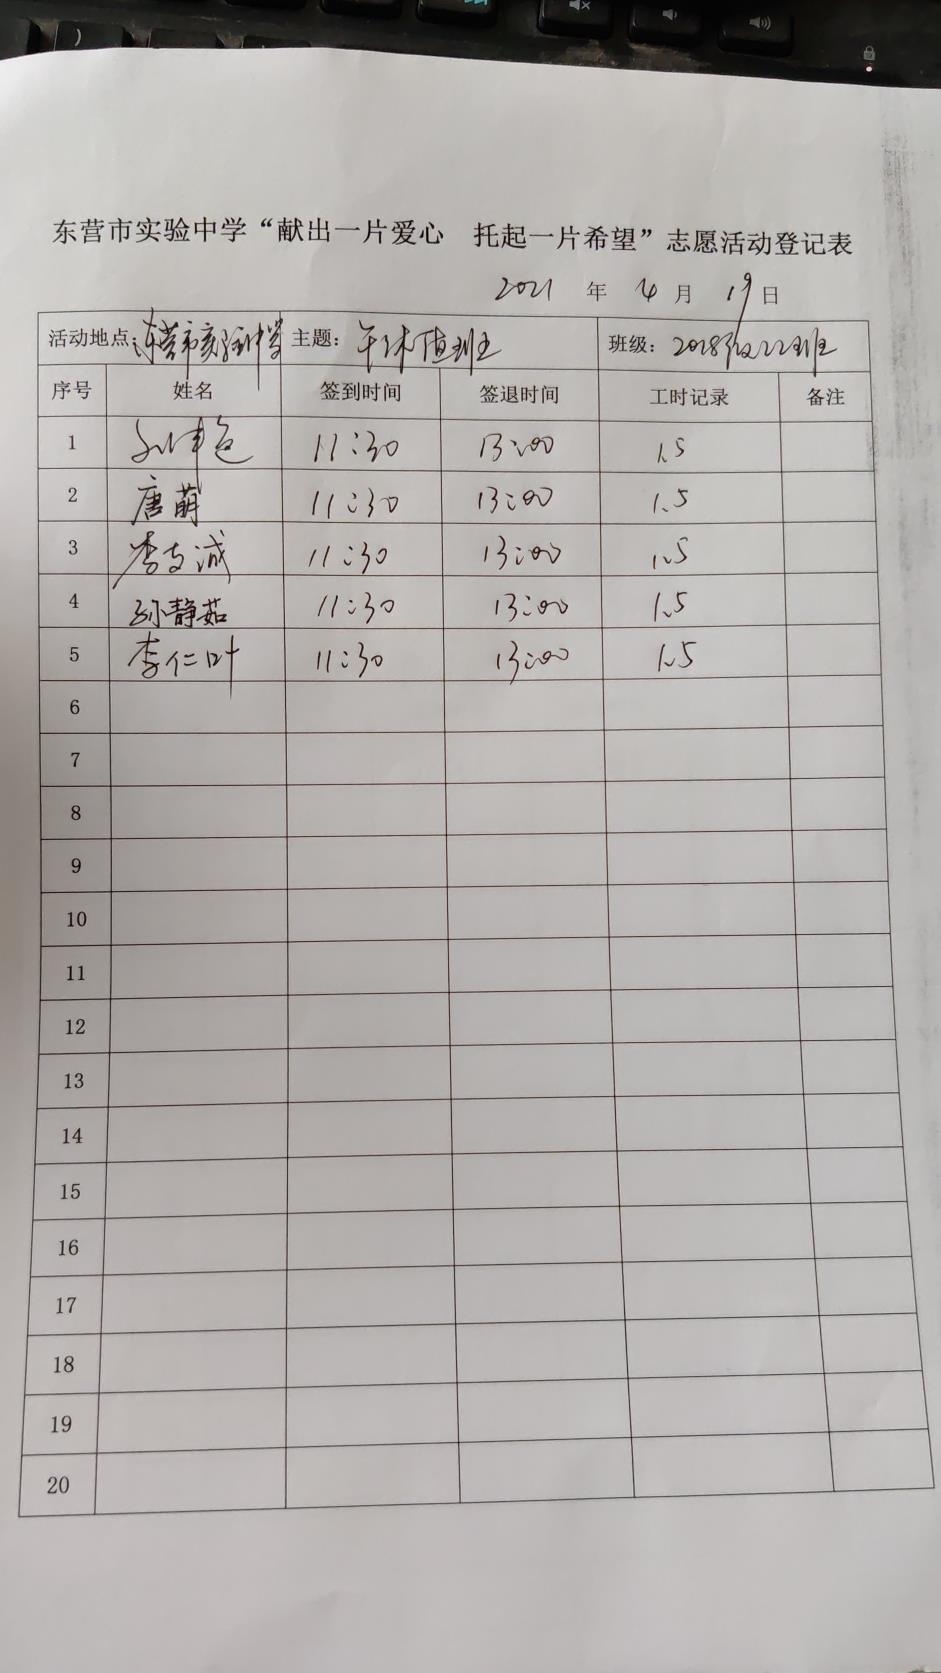 东营市实验中学“献出一片爱心 托起一片希望”志愿活动登记表
2021 年 4 月 19 日
活动地点：东营市实验中学 主题：午休值班 班级：2018级22班
序号 姓名 签到时间 签退时间 工时记录 备注
1 11:30 13:00 1.5
2 唐萌 11:30 13:00 1.5
3 李志诚 11:30 13:00 1.5
4 孙静茹 11:30 13:00 1.5
5 李仁叶 11:30 13:00 1.5
6
7
8
9
10
11
12
13
14
15
16
17
18
19
20